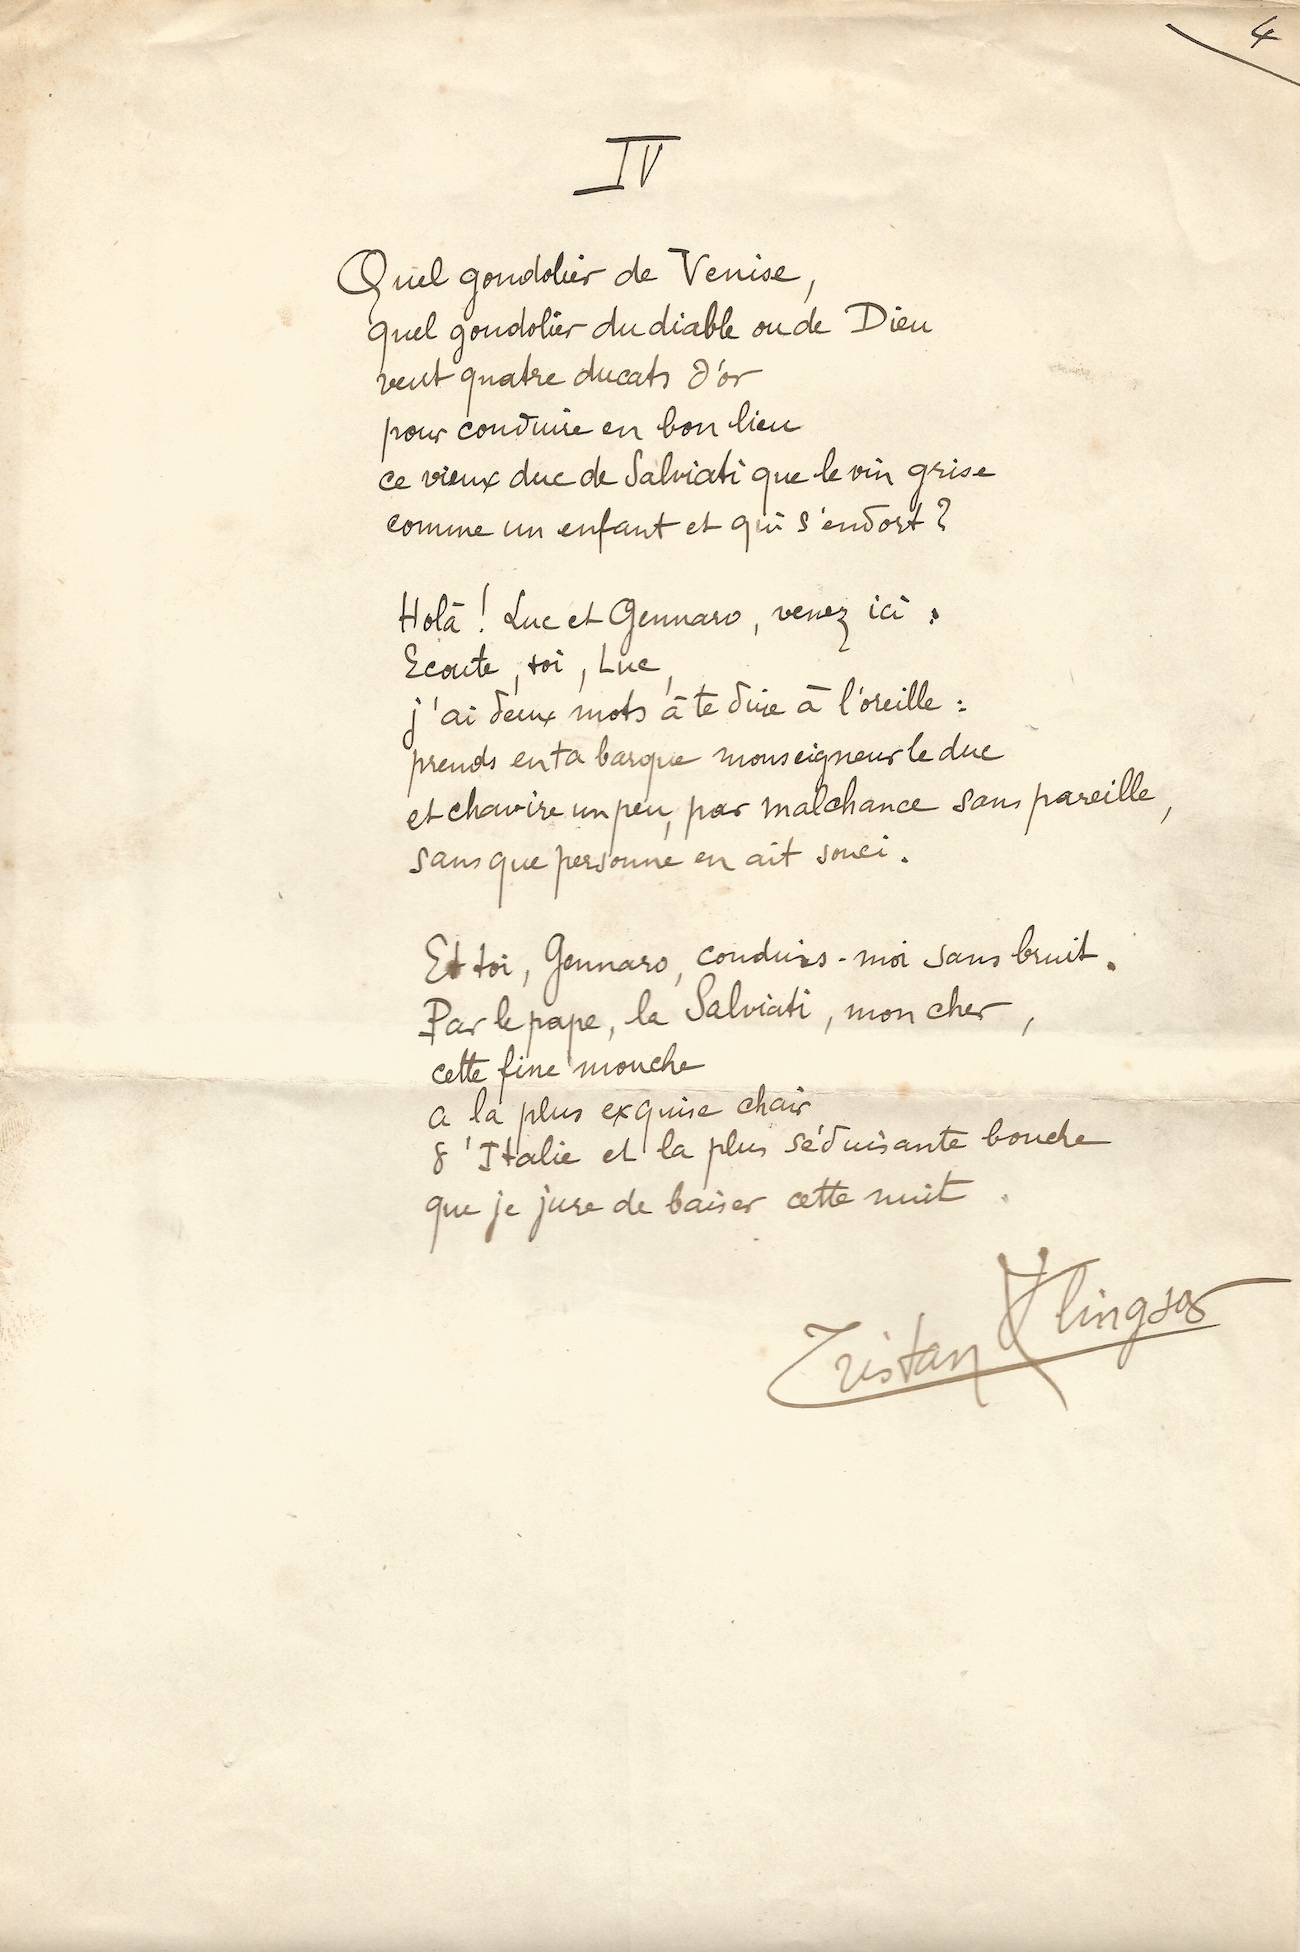 4
IV
Quel gondolier de Venise,
quel gondolier du diable ou de Dieu
veut quatre ducats d'or
pour conduire en bon lieu
ce vieux duc de Salviati que le vin grise
comme un enfant et qui s'endort ?
Holà ! Luc et Gennaro, venez ici.
Ecoute, toi, Luc,
j'ai deux mots à te dire à l'oreille :
prends en ta barque monseigneur le duc
et chavire un peu, par malchance sans pareille,
sans que personne en ait souci.
Et toi, Gennaro, conduis-moi sans bruit.
Par le pape, la Salviati, mon cher,
cette fine mouche
a la plus exquise chair
d'Italie et la plus séduisante bouche
que je jure de baiser cette nuit.
Tristan Klingsor